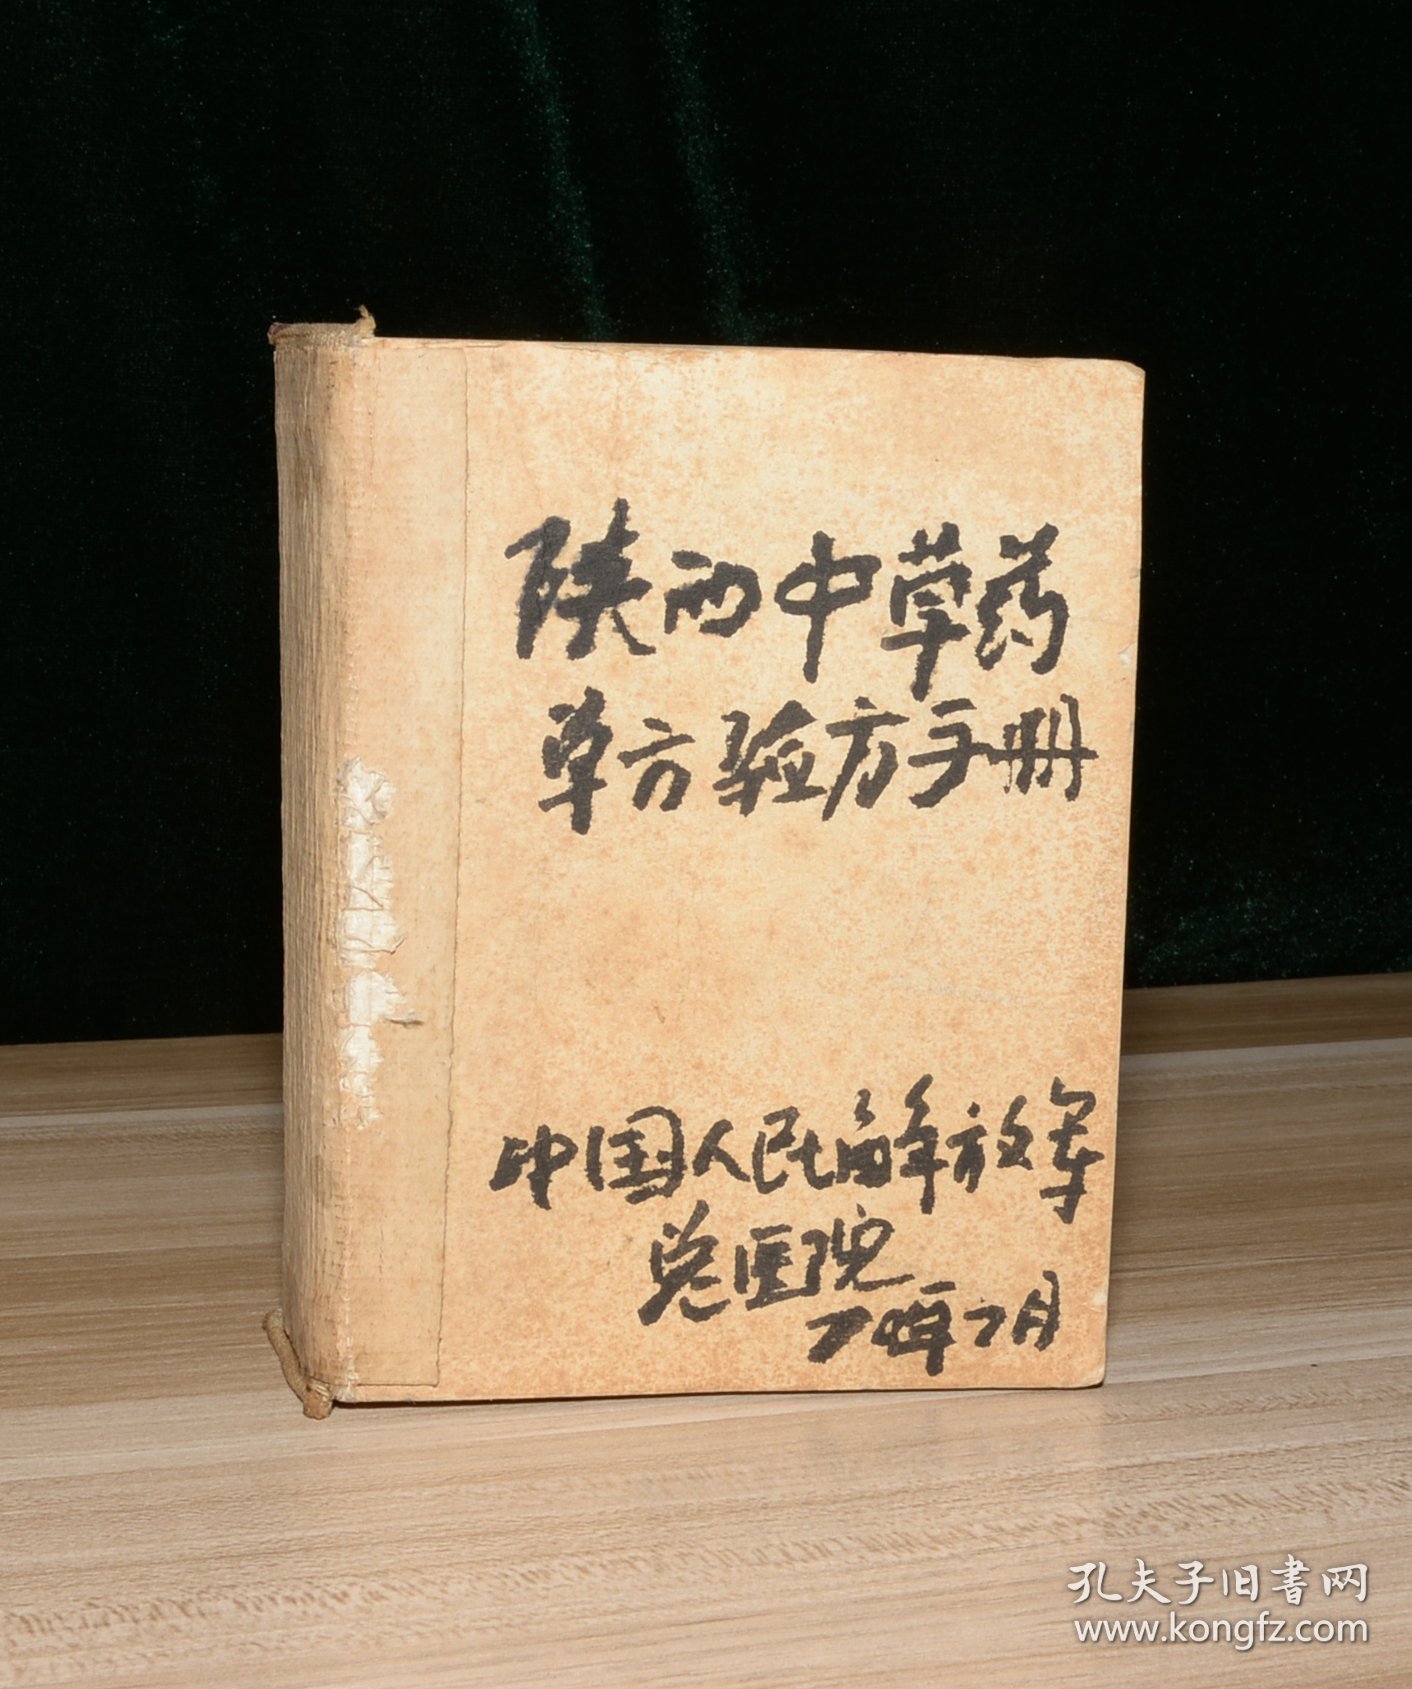 陕西中草药
单方验方手册
中国人民解放军
总医院
年 月
孔夫子旧书网
www.kongfz.com